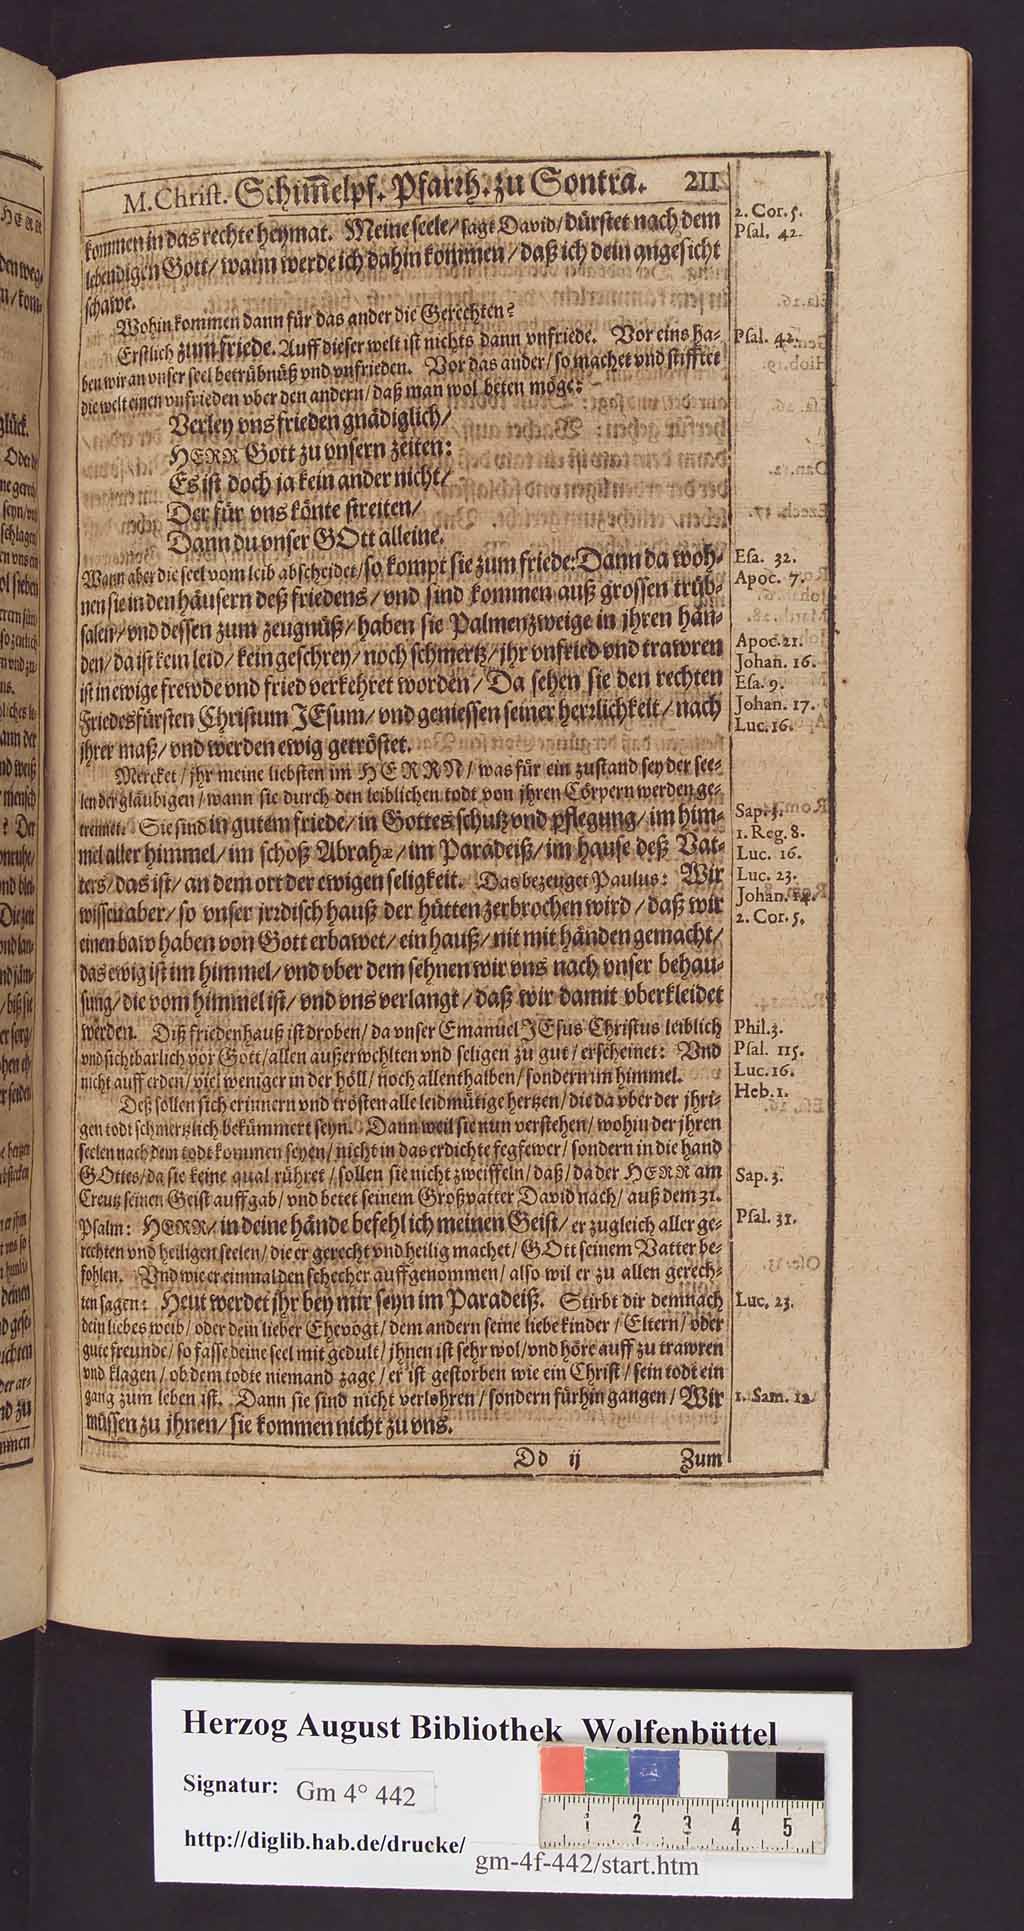 M. Christ. Schim̃elpf. Pfarrh. zu Sontra. 211
kommen in das rechte heymat. Meine seele/ sagt David/ dürstet nach dem
lebendigen Gott/ wann werde ich dahin kommen/ daß ich dein angesicht
schawe.
2. Cor. 5.
Psal. 42.
Wohin kommen dann für das ander die Gerechten?
Erstlich zum friede. Auff dieser welt ist nichts dann vnfriede. Vor eins ha-
ben wir an vnser seel betrübnüß vnd vnfrieden. Vor das ander/ so machet vnd stifftet
die welt einen vnfrieden vber den andern/ daß man wol beten möge:
Psal. 42.
Verley vns frieden gnädiglich/
HERR Gott zu vnsern zeiten:
Es ist doch ja kein ander nicht/
Der für vns könte streiten/
Dann du vnser GOtt alleine.
Wann aber die seel vom leib abscheidet/ so kompt sie zum friede: Dann da woh-
nen sie in den häusern deß friedens/ vnd sind kommen auß grossen trüb-
salen/ vnd dessen zum zeugnüß/ haben sie Palmenzweige in jhren hän-
den/ da ist kein leid/ kein geschrey/ noch schmertz/ jhr vnfried vnd trawren
ist in ewige frewde vnd fried verkehret worden/ Da sehen sie den rechten
Friedesfürsten Christum JEsum/ vnd geniessen seiner herrlichkeit/ nach
jhrer maß/ vnd werden ewig getröstet.
Esa. 32.
Apoc. 7.
Apoc. 21.
Johan. 16.
Esa. 9.
Johan. 17.
Luc. 16.
Mercket/ jhr meine liebsten im HERRN/ was für ein zustand sey der see-
len der gläubigen/ wann sie durch den leiblichen todt von jhren Cörpern werden ge-
trennet. Sie sind in gutem friede/ in Gottes schutz vnd pflegung/ im him-
mel aller himmel/ im schoß Abrahæ/ im Paradeiß/ im hause deß Vat-
ters/ das ist/ an dem ort der ewigen seligkeit. Das bezeuget Paulus: Wir
wissen aber/ so vnser jrrdisch hauß der hütten zerbrochen wird/ daß wir
einen baw haben von Gott erbawet/ ein hauß/ nit mit händen gemacht/
das ewig ist im himmel/ vnd vber dem sehnen wir vns nach vnser behau-
sung/ die vom himmel ist/ vnd vns verlangt/ daß wir damit vberkleidet
werden. Diß friedenhauß ist droben/ da vnser Emanuel JEsus Christus leiblich
vnd sichtbarlich vor Gott/ allen außerwehlten vnd seligen zu gut/ erscheinet: Vnd
nicht auff erden/ viel weniger in der höll/ noch allenthalben/ sondern im himmel.
Sap. 3.
1. Reg. 8.
Luc. 16.
Luc. 23.
Johan. 14.
2. Cor. 5.
Phil. 3.
Psal. 115.
Luc. 16.
Heb. 1.
Deß sollen sich erinnern vnd trösten alle leidmütige hertzen/ die da vber der jhri-
gen todt schmertzlich bekümmert seyn. Dann weil sie nun verstehen/ wohin der jhren
seelen nach dem todt kommen seyen/ nicht in das erdichte fegfewer/ sondern in die hand
GOttes/ da sie keine qual rühret/ sollen sie nicht zweiffeln/ daß/ da der HERR am
Creutz seinen Geist auffgab/ vnd betet seinem Großvatter David nach/ auß dem 31.
Psalm: HERR/ in deine hände befehl ich meinen Geist/ er zugleich aller ge-
rechten vnd heiligen seelen/ die er gerecht vnd heilig machet/ GOtt seinem Vatter be-
fohlen. Vnd wie er einmal den schecher auffgenommen/ also wil er zu allen gerech-
ten sagen: Heut werdet jhr bey mir seyn im Paradeiß. Stirbt dir demnach
dein liebes weib/ oder dein lieber Ehevogt/ dem andern seine liebe kinder/ Eltern/ oder
gute freunde/ so fasse deine seel mit gedult/ jhnen ist sehr wol/ vnd höre auff zu trawren
vnd klagen/ ob dem todte niemand zage/ er ist gestorben wie ein Christ/ sein todt ein
gang zum leben ist. Dann sie sind nicht verlohren/ sondern fürhin gangen/ Wir
müssen zu jhnen/ sie kommen nicht zu vns.
Sap. 3.
Psal. 31.
Luc. 23.
1. Sam. 12.
Dd ij Zum
Herzog August Bibliothek Wolfenbüttel
Signatur: Gm 4° 442
http://diglib.hab.de/drucke/
gm-4f-442/start.htm
1 2 3 4 5